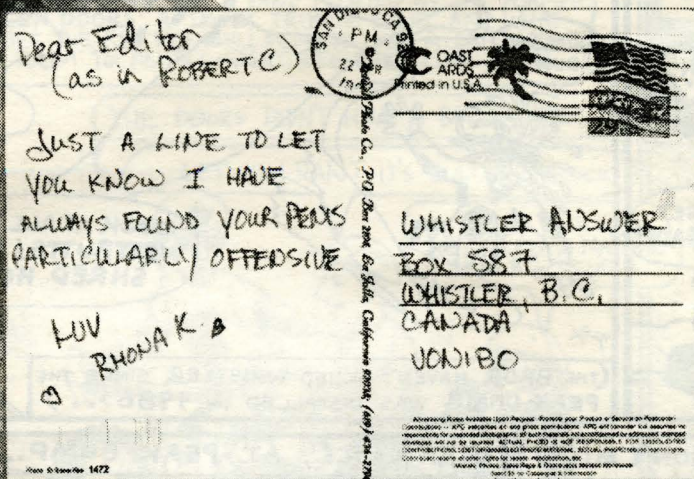 Dear Editor
(as in ROBERT C)
JUST A LINE TO LET
YOU KNOW I HAVE
ALWAYS FOUND YOUR PENIS
PARTICULARLY OFFENSIVE
LUV
RHONA K
Photo
1472
Photo Co., P.O. Box La Jolla, California
SAN DIEGO CA
PM
22
COAST
CARDS
Printed in U.S.A.
29
WHISTLER ANSWER
BOX 587
WHISTLER, B.C.
CANADA
VONIBO